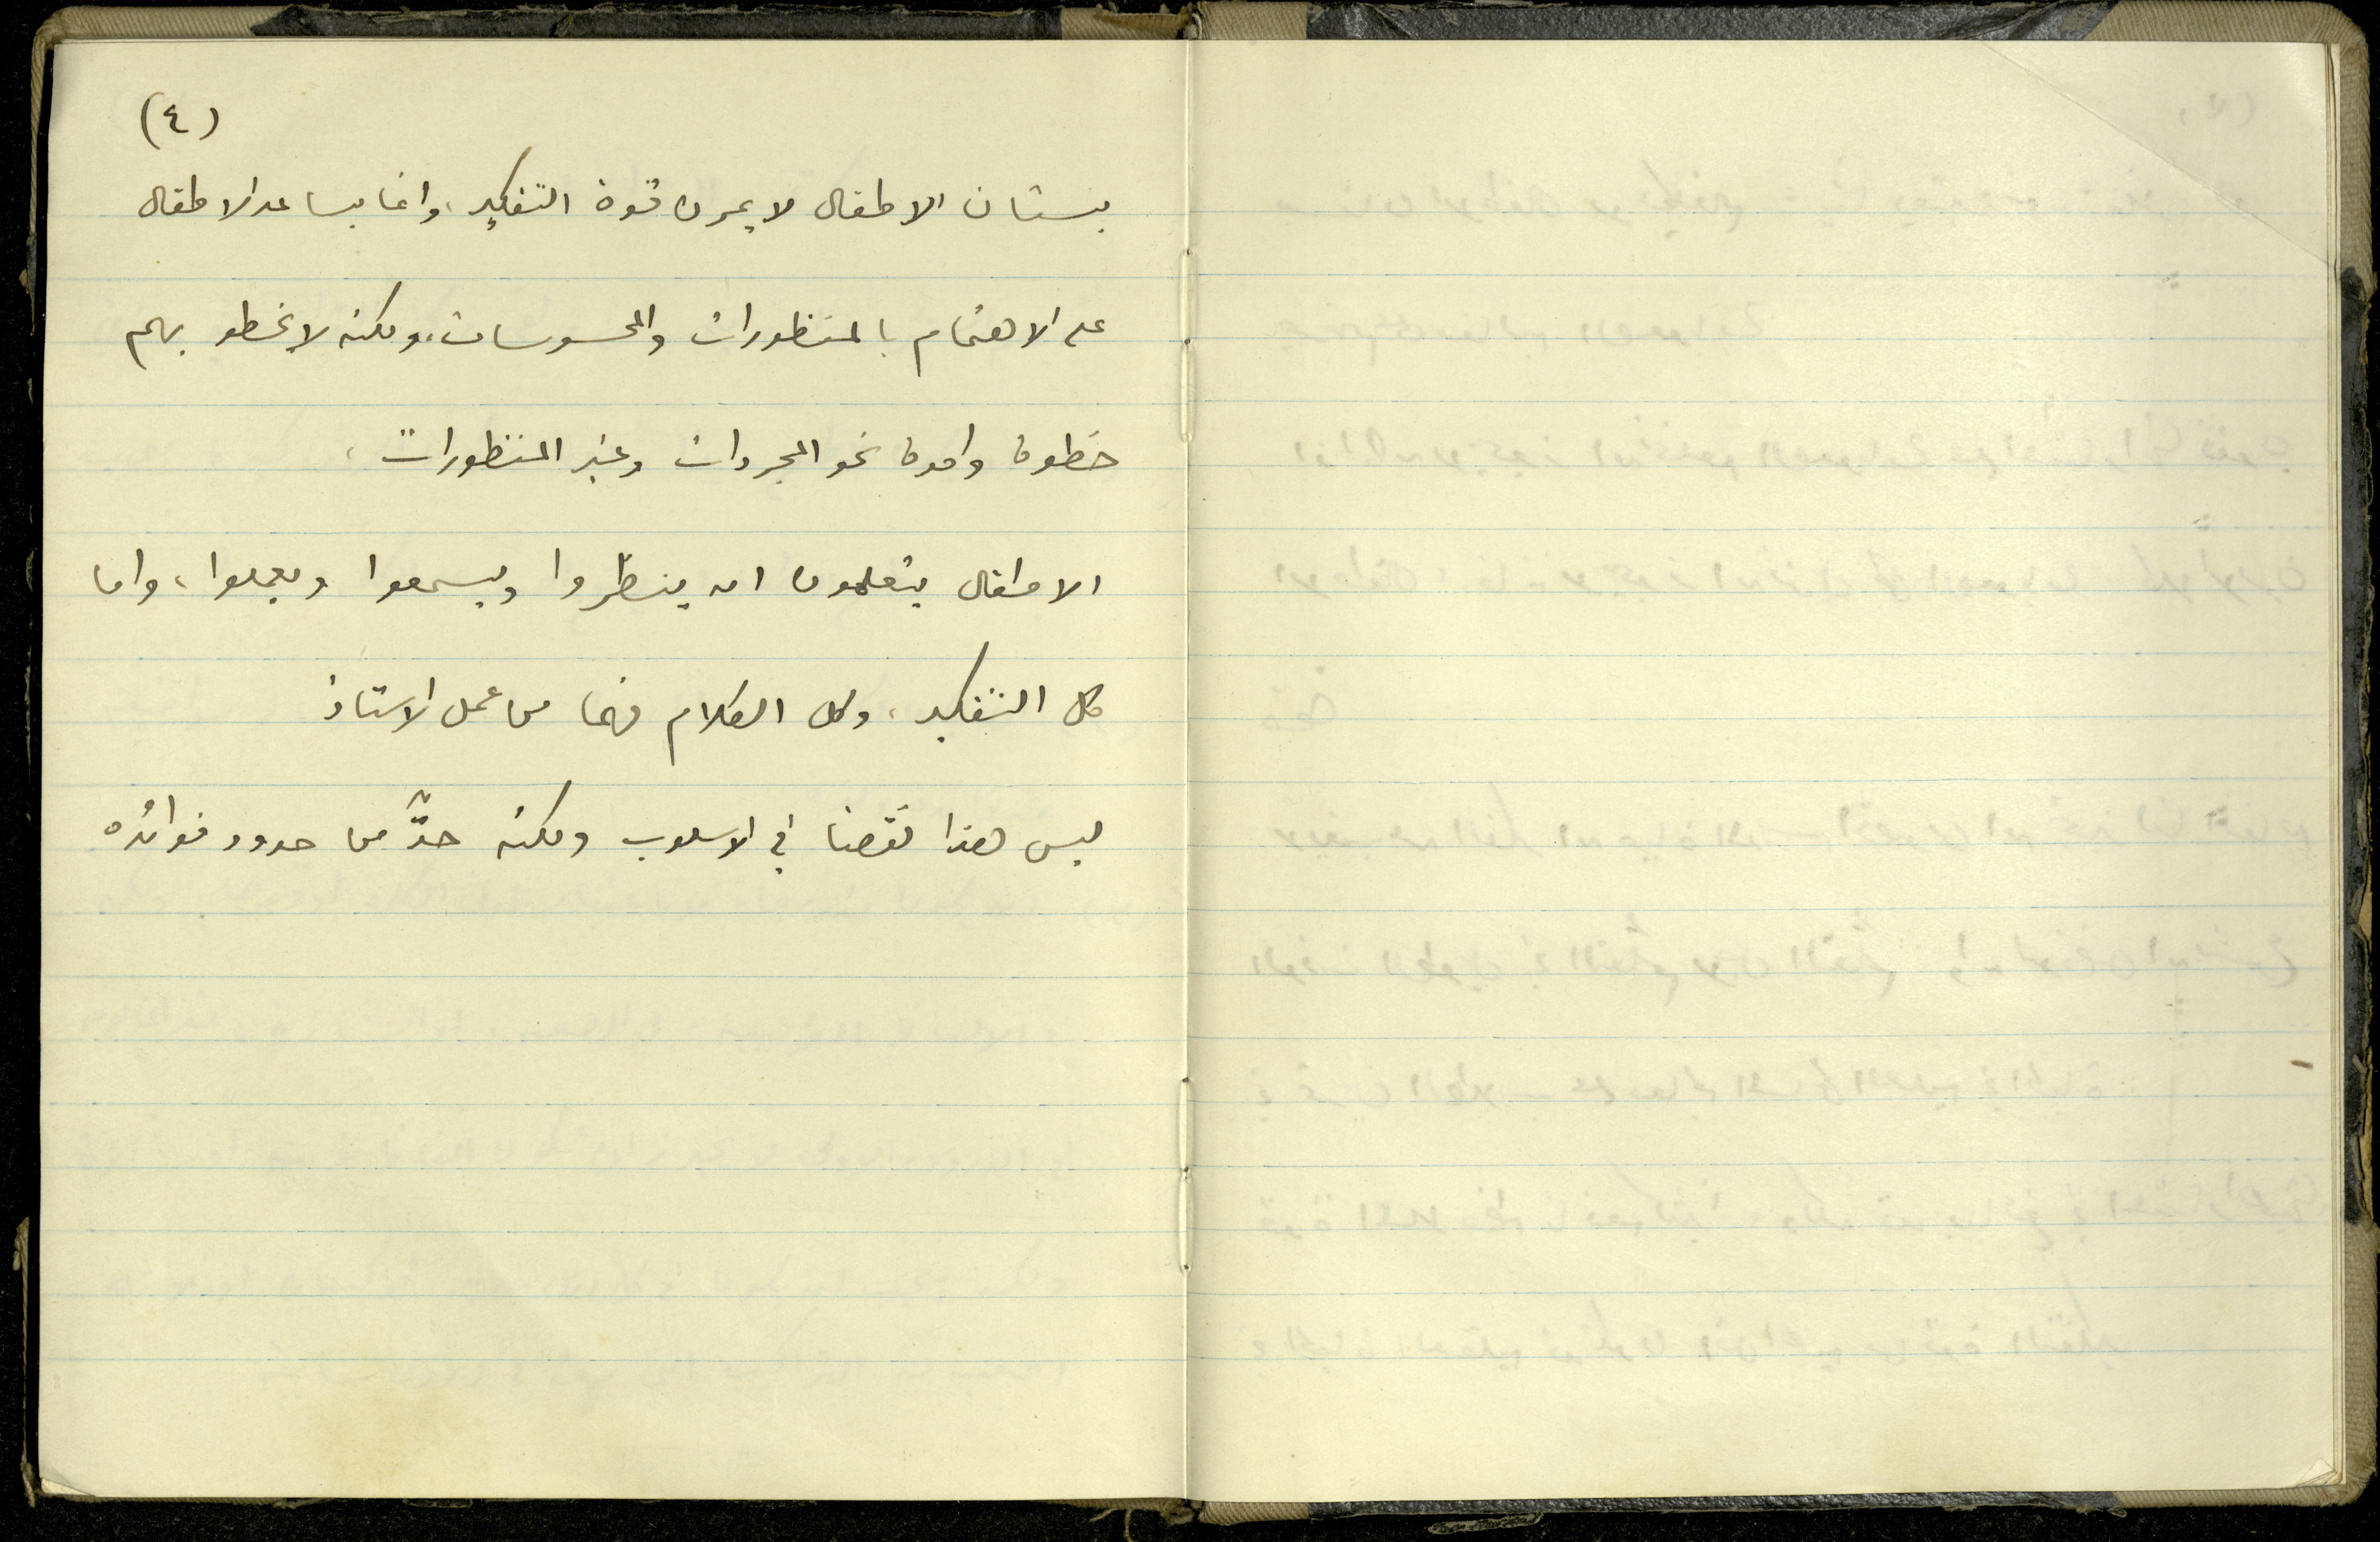 (٤)
بستان الاطفال لا يمرن قوة التفكير، وانما يساعد الاطفال
على الاهتمام بالمنظورات والمحسوسات، ولكنه لا يخطو بهم
خطوة واحدة نحو المجردات وغير المنظورات،
الاطفال يتعلمون ان ينظروا ويسمعوا ويعملوا، واما
كل التفكير، وكل الكلام فهما من عمل الاستاذ
ليس هذا نقصنا في الاسلوب ولكنه حدٌّ من حدود فوائده